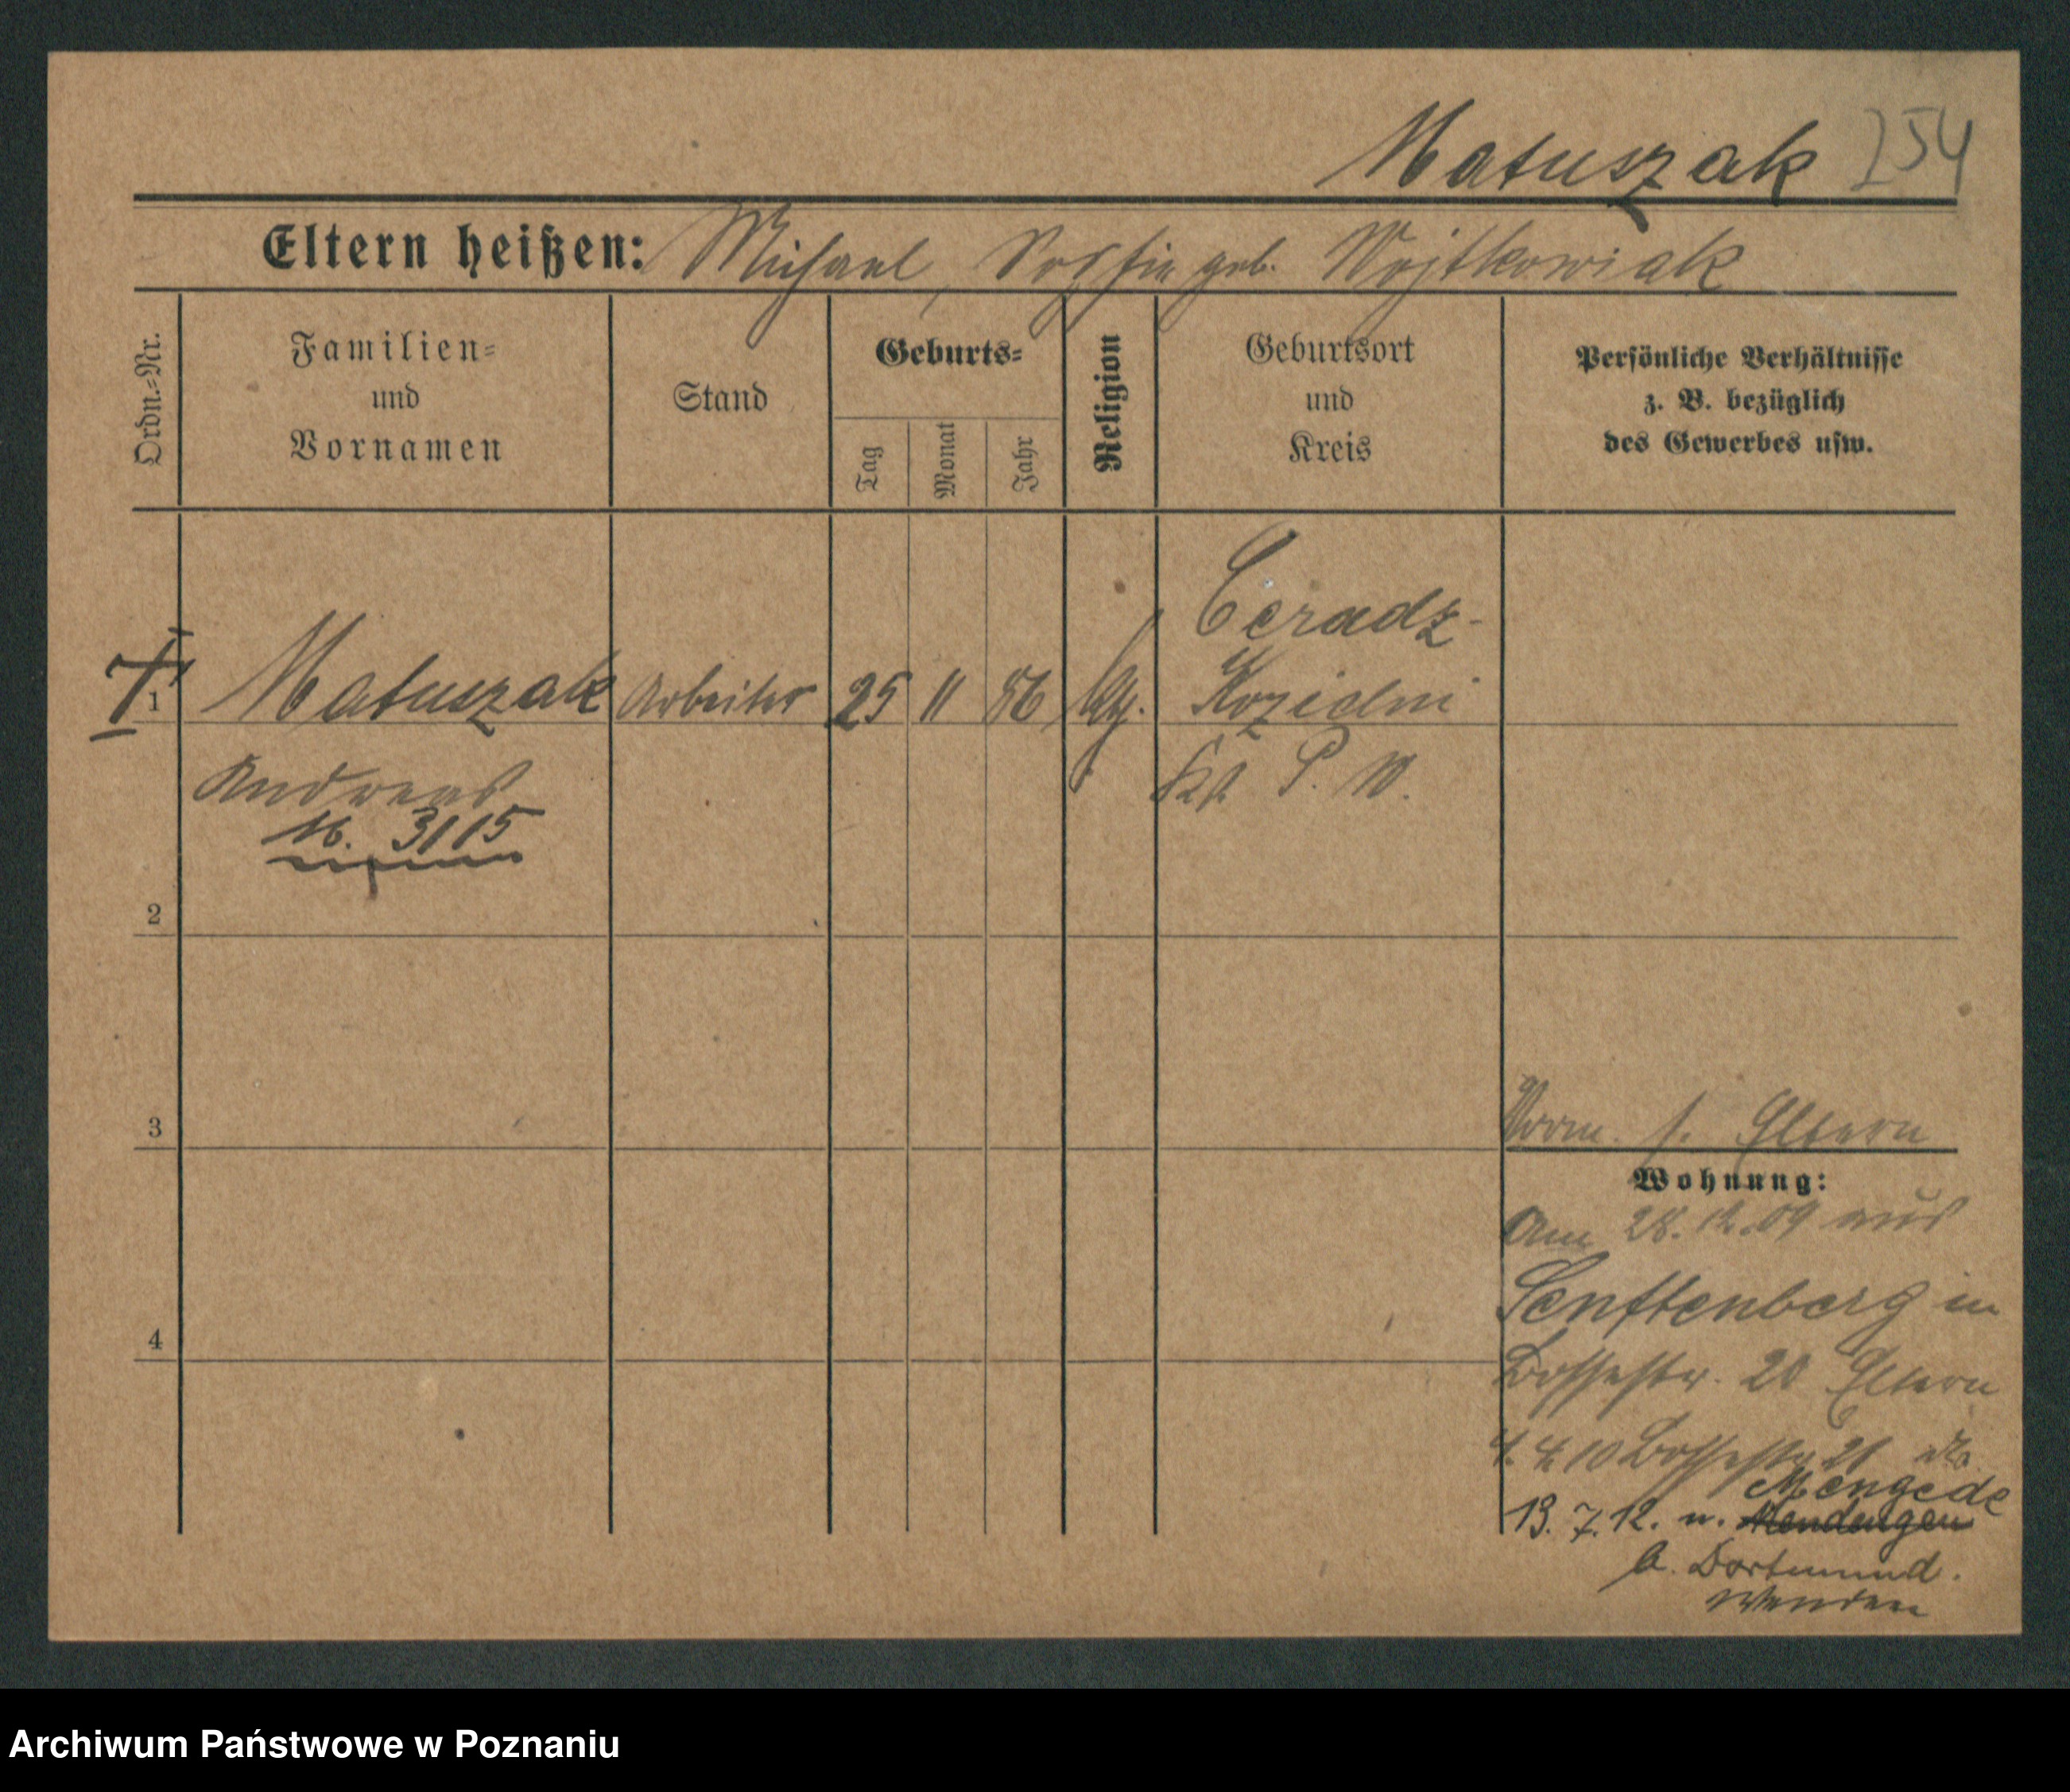 Matuszak 254
Eltern heißen: Michael, Sophie geb. Wojtkowiak
Ordn.-Nr.
Familien-
und
Vornamen
Stand
Geburts-
Tag
Monat
Jahr
Religion
Geburtsort
und
Kreis
Persönliche Verhältnisse
z. B. bezüglich
des Gewerbes usw.
1
Matuszak
Arbeiter
25
11
86
Ceradz-
Kozielni
P. W.
Andreas
3115
2
3
4
Vorm. s. Eltern
Wohnung:
Am 28.12.09 aus
Senftenberg in
20 Eltern
4. 10
Mengede
13. 7. 12. n.
b. Dortmund.